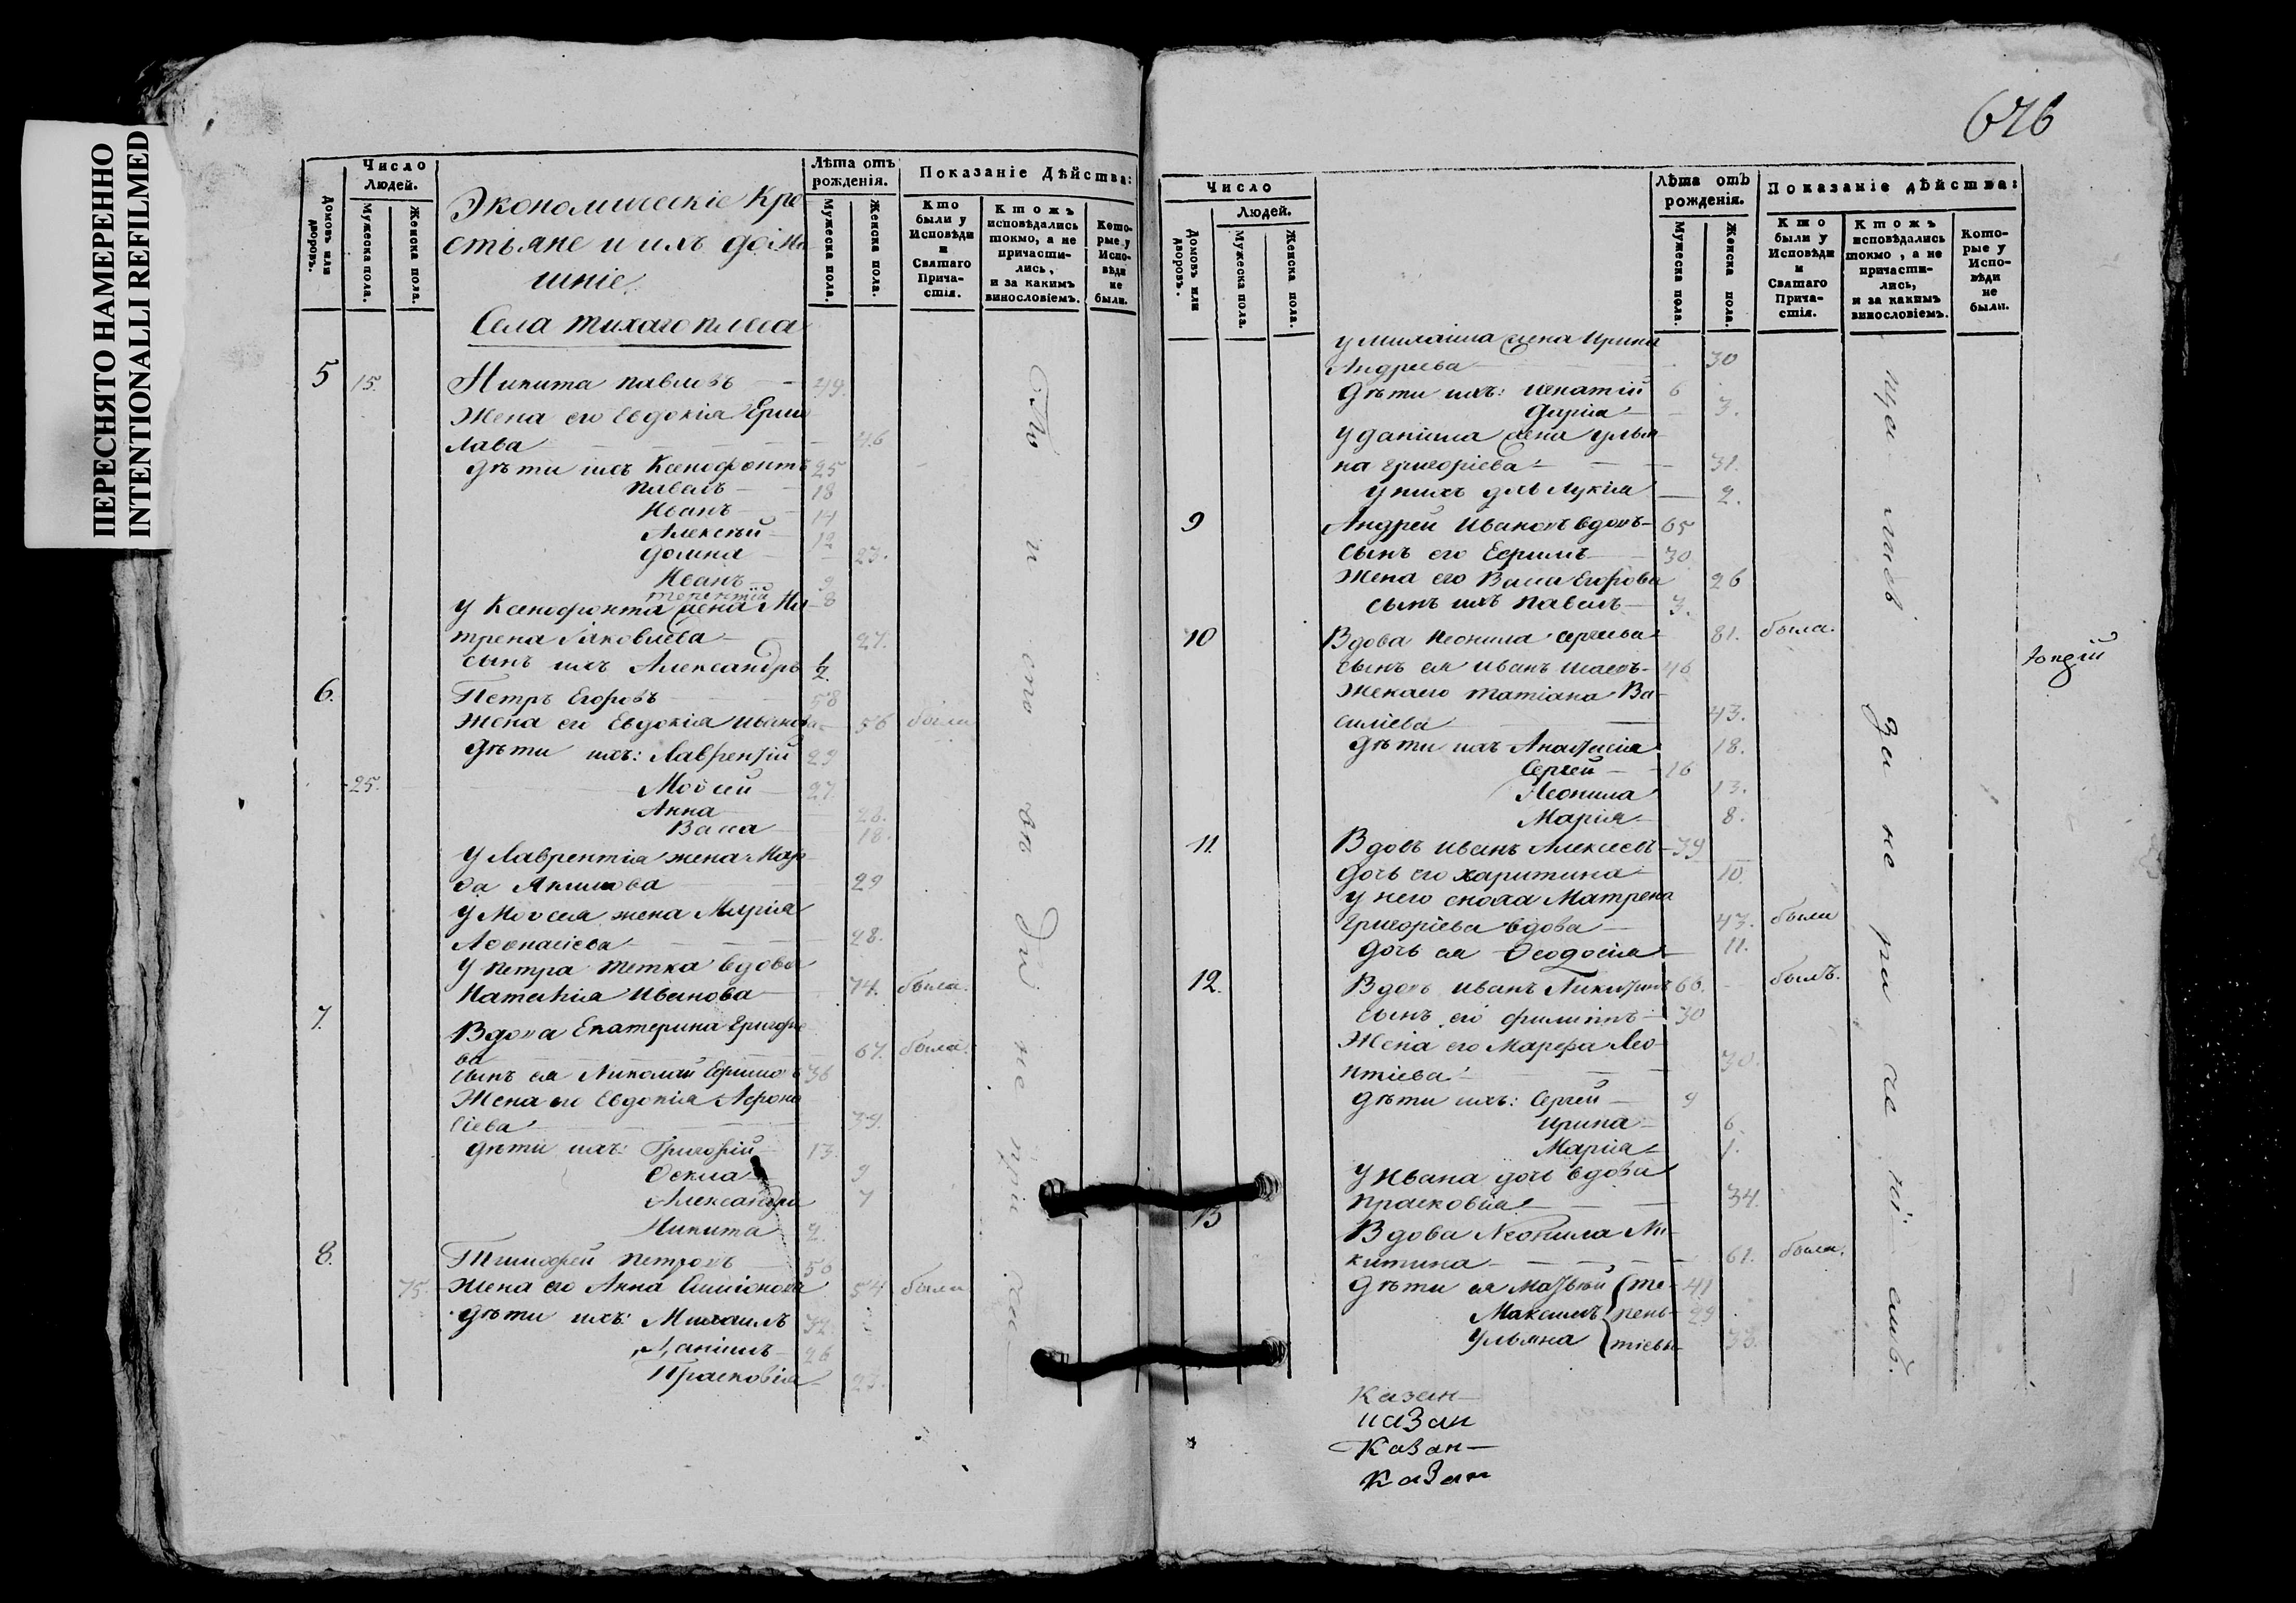 ПЕРЕСНЯТО НАМЕРЕННО
INTENTIONALLI REFILMED
Число
Людей.
Домовъ или дворовъ.
Мужеска пола.
Женска пола.
Экономическіе Кре-
стьяне и ихъ дома-
шніе.
Села Тихаго плеса
Лѣта отъ рожденія.
Мужеска пола.
Женска пола.
Показаніе Дѣйства:
Кто были у Исповѣди и Святаго Прича-стія.
Ктожъ исповѣдались токмо, а не причасти-лись, и за какимъ винословіемъ.
Кото-рые у Испо-вѣди не были.
5 15. Никита Павловъ 49.
Жена его Евдокія Ермо
лава 46
дѣти ихъ Ксенофонтъ 25
Павелъ 18
Иванъ 14
Алексѣй 12
Домна 23.
Иванъ 9
Терентій 8
у Ксенофонта жена Ма
трена Яковлева 27.
сынъ ихъ Александръ 1/2.
6. Петръ Егоровъ 58
Жена его Евдокія Иванова 56 были
Дѣти ихъ: Лаврентій 29
25. Моѵсей 27
Анна 26.
Васса 18.
У Лаврентія жена Мар
ѳа Акимова 29
У Моѵсея жена Марія
Аѳонасіева 28.
У Петра тетка вдова
Наталія Иванова 74. была.
7. Вдова Екатерина Григорье
ва 67. была.
сынъ ея Николай Ефимов 36
Жена его Евдокія Афона
сіева 39.
дѣти ихъ: Григорій 13.
Ѳекла 9
Александра 7
Никита 2.
8. Тимофей Петровъ 50
75. Жена его Анна Симіонова 54 были
дѣти ихъ: Михаилъ 32.
Даніилъ 26
Прасковія 23.
и сто не при
676
Число
Людей.
Домовъ или дворовъ.
Мужеска пола.
Женска пола.
Лѣта отъ рожденія.
Мужеска пола.
Женска пола.
Показаніе дѣйства:
Кто были у Исповѣди и Святаго Прича-стія.
Ктожъ исповѣдались токмо, а не причасти-лись, и за какимъ винословіемъ.
Кото-рые у Испо-вѣди не были.
у Михаила жена Ирина
Андреева 30
Дѣти ихъ: Игнатій 6
Дарія 3.
У Даніила жена Улья
на Григоріева 31.
у нихъ дочь Лукія 2.
9 Андрей Ивановъ вдовъ 65
Сынъ его Ефимъ 30
Жена его Васса Егорова 26
сынъ ихъ Павелъ 3.
10 Вдова Неонила Сергеева 81. была.
сынъ ея Иванъ 46
Жена его Татіана Ва-
силіева 43.
дѣти ихъ Анастасія 18.
Сергей 16
Неонила 13.
Марія 8.
11. Вдовъ Иванъ Алексеевъ 39
Дочь его Харитина 10.
у него сноха Матрена
Григоріева вдова 43. были
дочь ея Ѳеодосія 11.
12. Вдовъ Иванъ Никитинъ 66. былъ.
сынъ его Филиппъ 30
Жена его Марфа Лео-
нтіева 30.
дѣти ихъ: Сергей 9
Ирина 6
Марія 1.
У Ивана дочь вдова
Прасковія 34.
13 Вдова Неонила Ни-
китина 61. была.
Дѣти ея Матвѣй (те- 41
Максимъ рень- 29
Ульяна тіевы 33.
за не ра
Казан
Казан
Казан
Казан